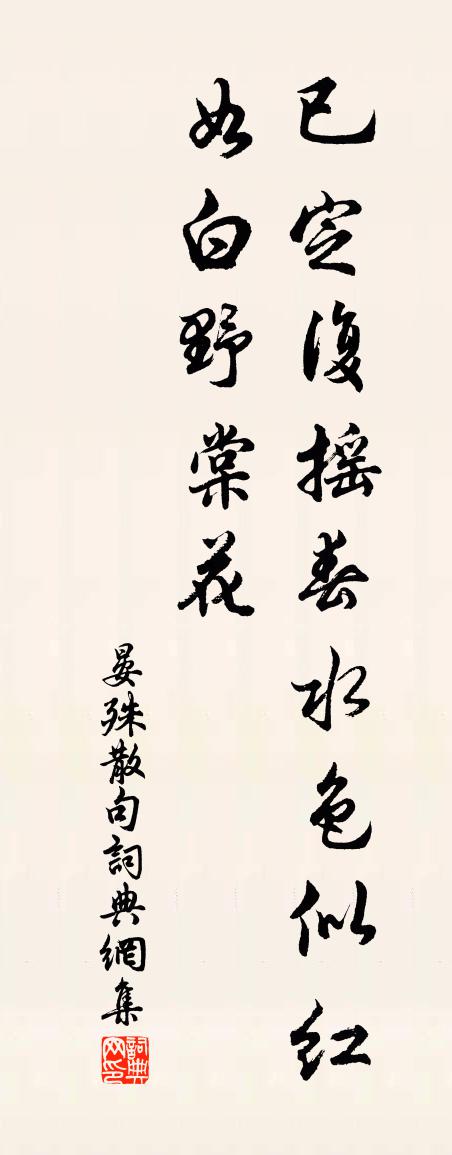 已定復搖春水色似紅
如白野棠花
晏殊散句詞典網集
詞典网印